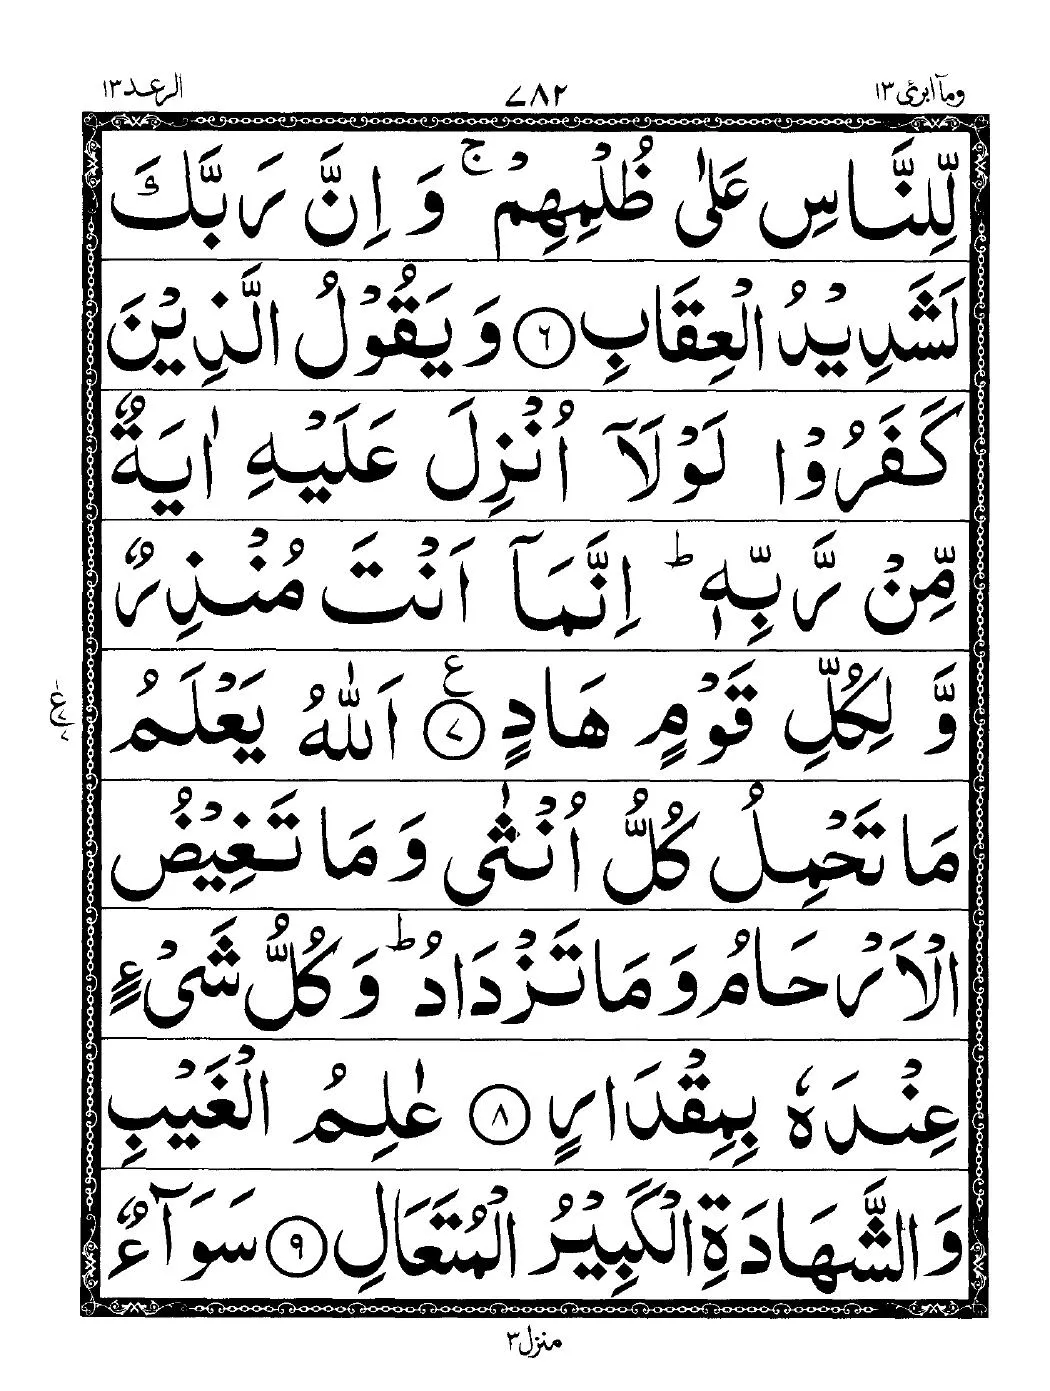 وماۤ ابرئ ١٣
٧٨٢
الرعد ١٣
لِّلنَّاسِ عَلٰى ظُلْمِهِمْ ۚ وَ اِنَّ رَبَّكَ
لَشَدِيْدُ الْعِقَابِ ﴿٦﴾ وَ يَقُوْلُ الَّذِيْنَ
كَفَرُوْا لَوْلَاۤ اُنْزِلَ عَلَيْهِ اٰيَةٌ
مِّنْ رَّبِّهٖ ؕ اِنَّمَاۤ اَنْتَ مُنْذِرٌ
وَّ لِكُلِّ قَوْمٍ هَادٍ ﴿٧﴾ ع اَللّٰهُ يَعْلَمُ
مَا تَحْمِلُ كُلُّ اُنْثٰى وَ مَا تَغِيْضُ
الْاَرْحَامُ وَ مَا تَزْدَادُ ؕ وَ كُلُّ شَىْءٍ
عِنْدَهٗ بِمِقْدَارٍ ﴿٨﴾ عٰلِمُ الْغَيْبِ
وَ الشَّهَادَةِ الْكَبِيْرُ الْمُتَعَالِ ﴿٩﴾ سَوَآءٌ
منزل ٣